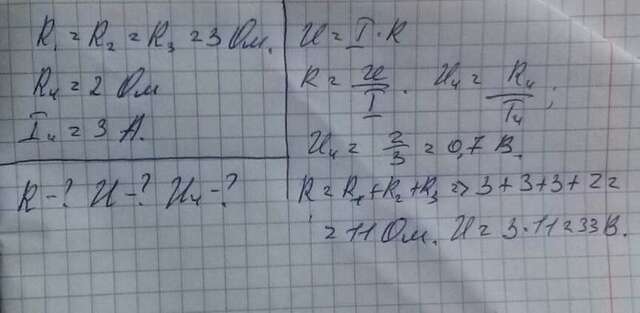 R₁ = R₂ = R₃ = 3 Ом.
R₄ = 2 Ом
I₄ = 3 А.
R-? U-? U₄-?
U = I · R
R = U/I. U₄ = R₄/I₄;
U₄ = 2/3 = 0,7 В.
R = R₁ + R₂ + R₃ => 3 + 3 + 3 + 2 =
= 11 Ом. U = 3 · 11 = 33 В.